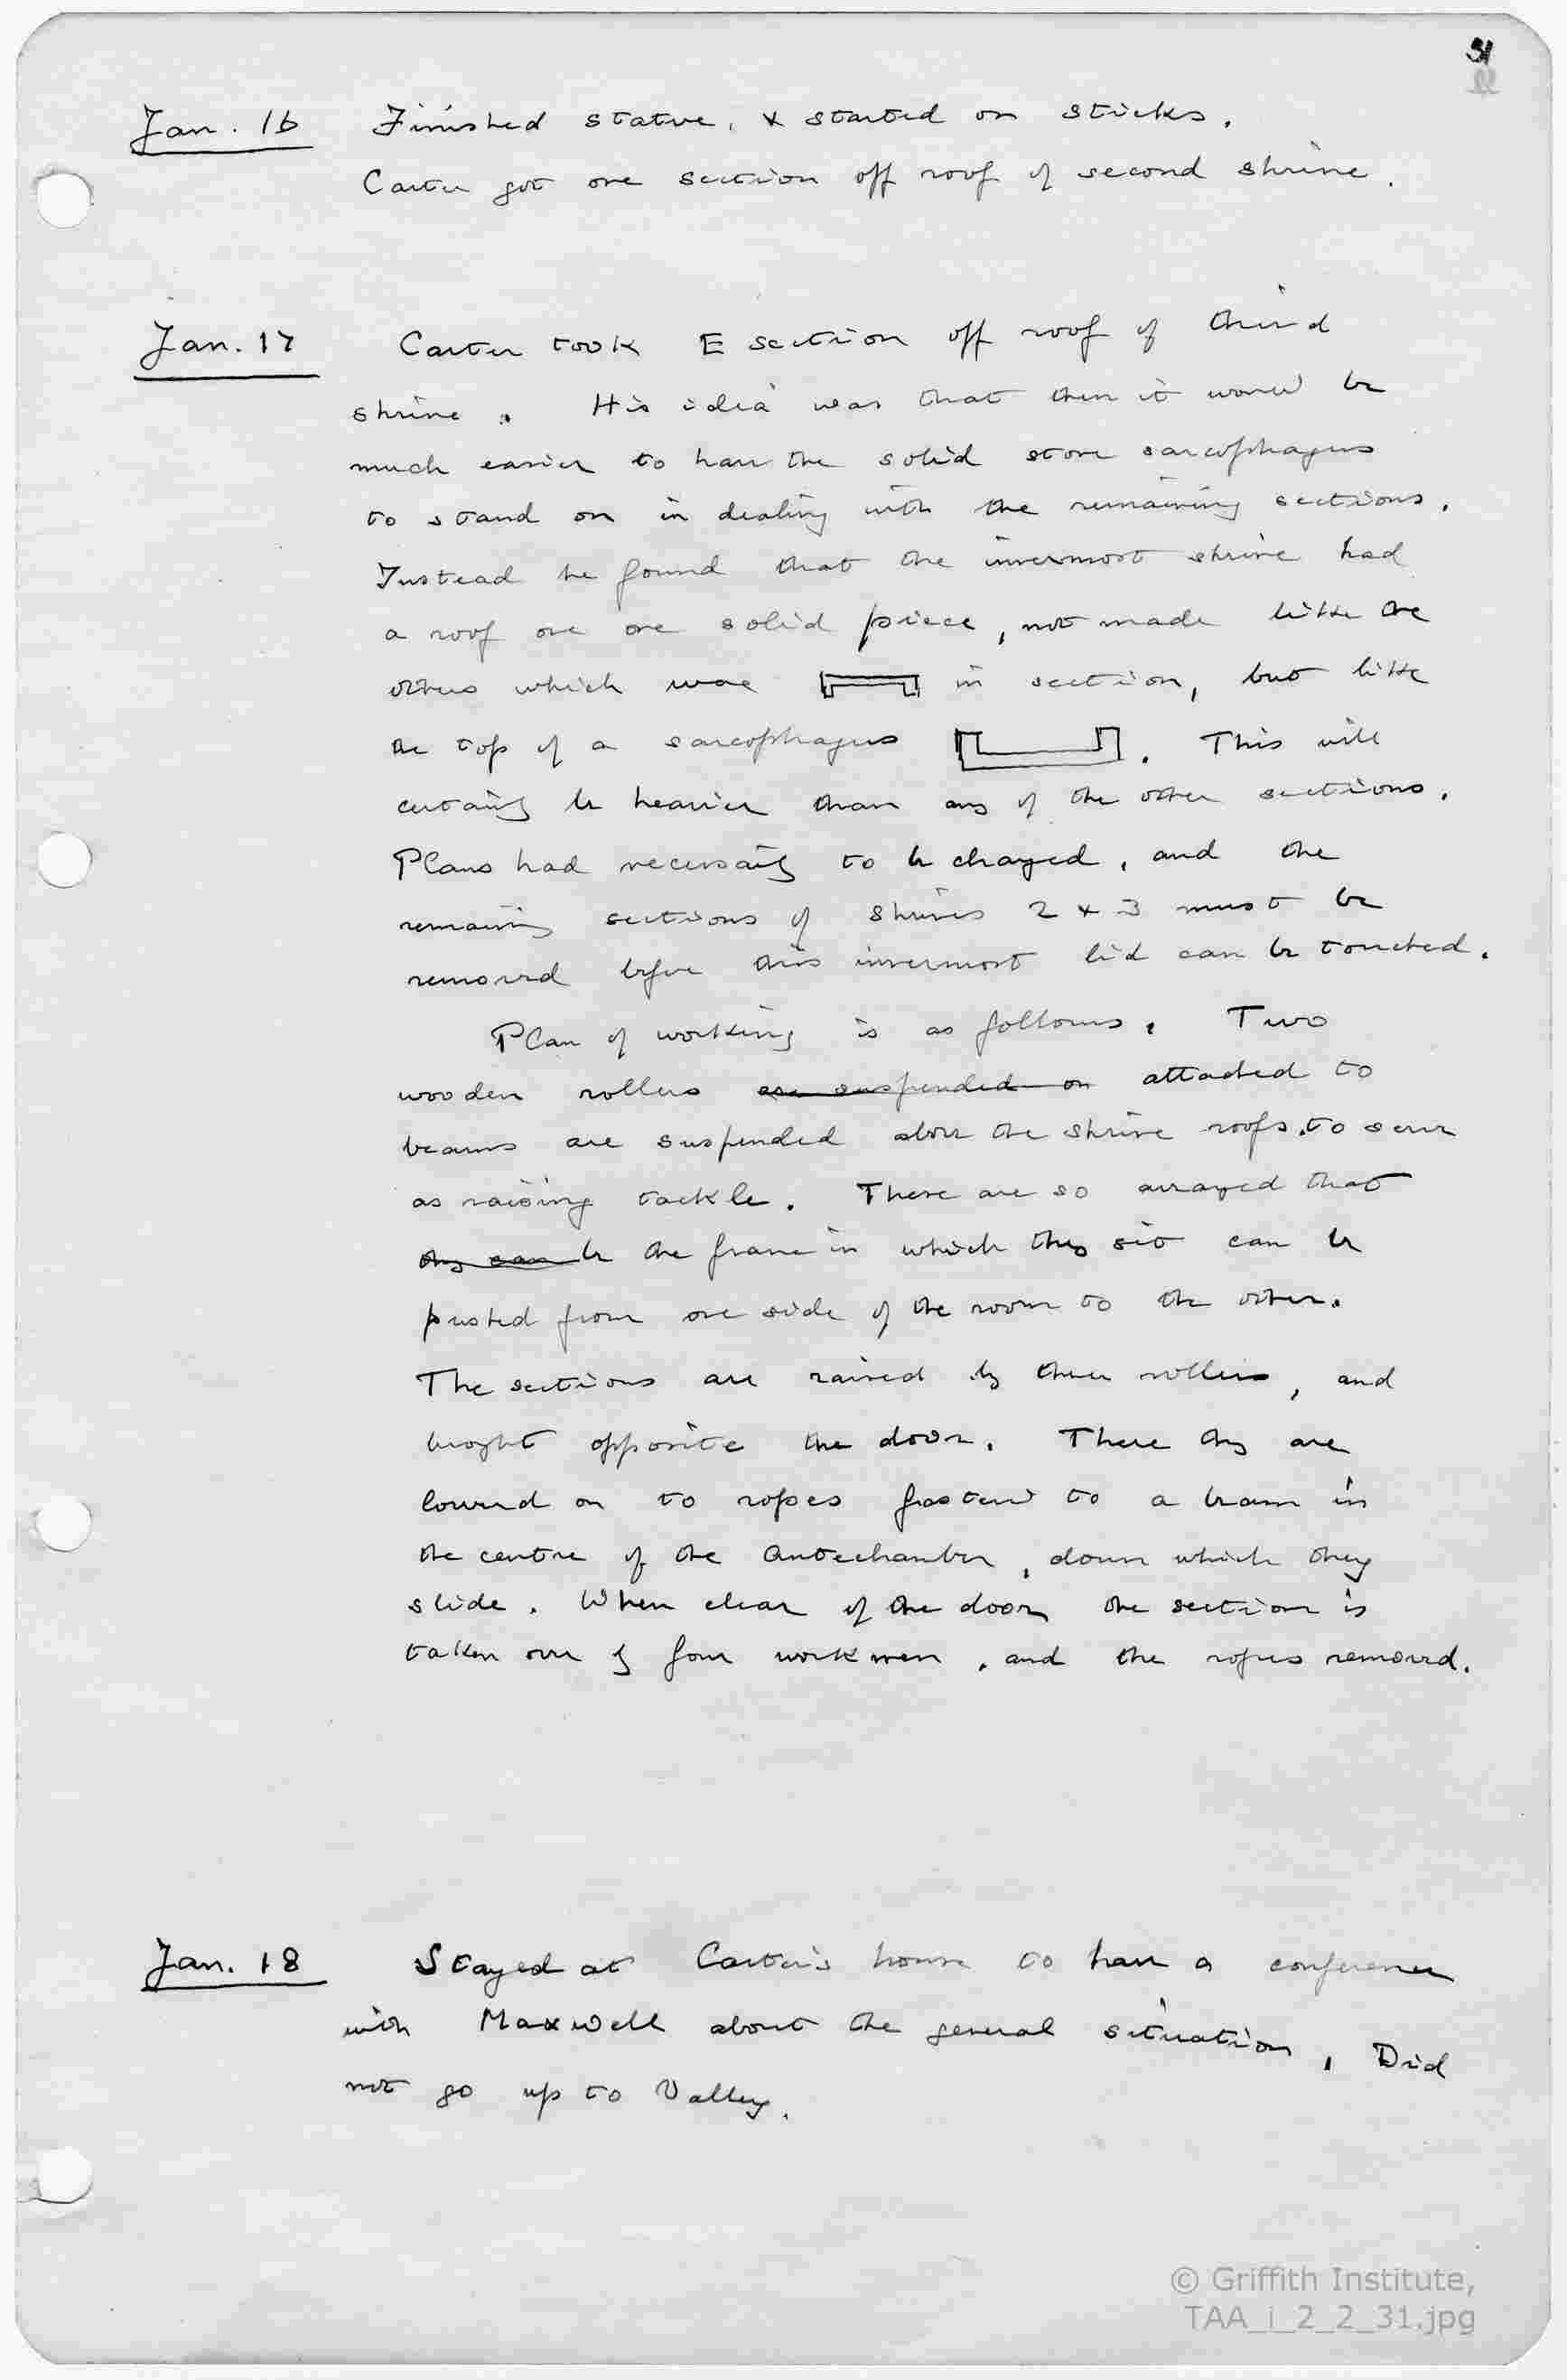 31
Jan. 16 Finished statue, & started on sticks.
Carter got one section off roof of second shrine.
Jan. 17 Carter took E section off roof of third
shrine. His idea was that then it would be
much easier to have the solid stone sarcophagus
to stand on in dealing with the remaining sections.
Instead he found that the innermost shrine had
a roof one one solid piece, not made like the
others which were in section, but like
the top of a sarcophagus . This will
certainly be heavier than any of the other sections.
Plans had necessarily to be changed, and the
remaining sections of shrines 2 & 3 must be
removed before this innermost lid can be touched.
Plan of working is as follows. Two
wooden rollers are suspended on attached to
beams are suspended above the shrine roofs, to serve
as raising tackle. These are so arranged that
they can be the frame in which they sit can be
pushed from one side of the room to the other.
The sections are raised by these rollers, and
brought opposite the door. There they are
lowered on to ropes fastened to a beam in
the centre of the Antechamber, down which they
slide. When clear of the door the section is
taken over by four workmen, and the ropes removed.
Jan. 18 Stayed at Carter's house to have a conference
with Maxwell about the general situation. Did
not go up to Valley.
© Griffith Institute,
TAA_i_2_2_31.jpg